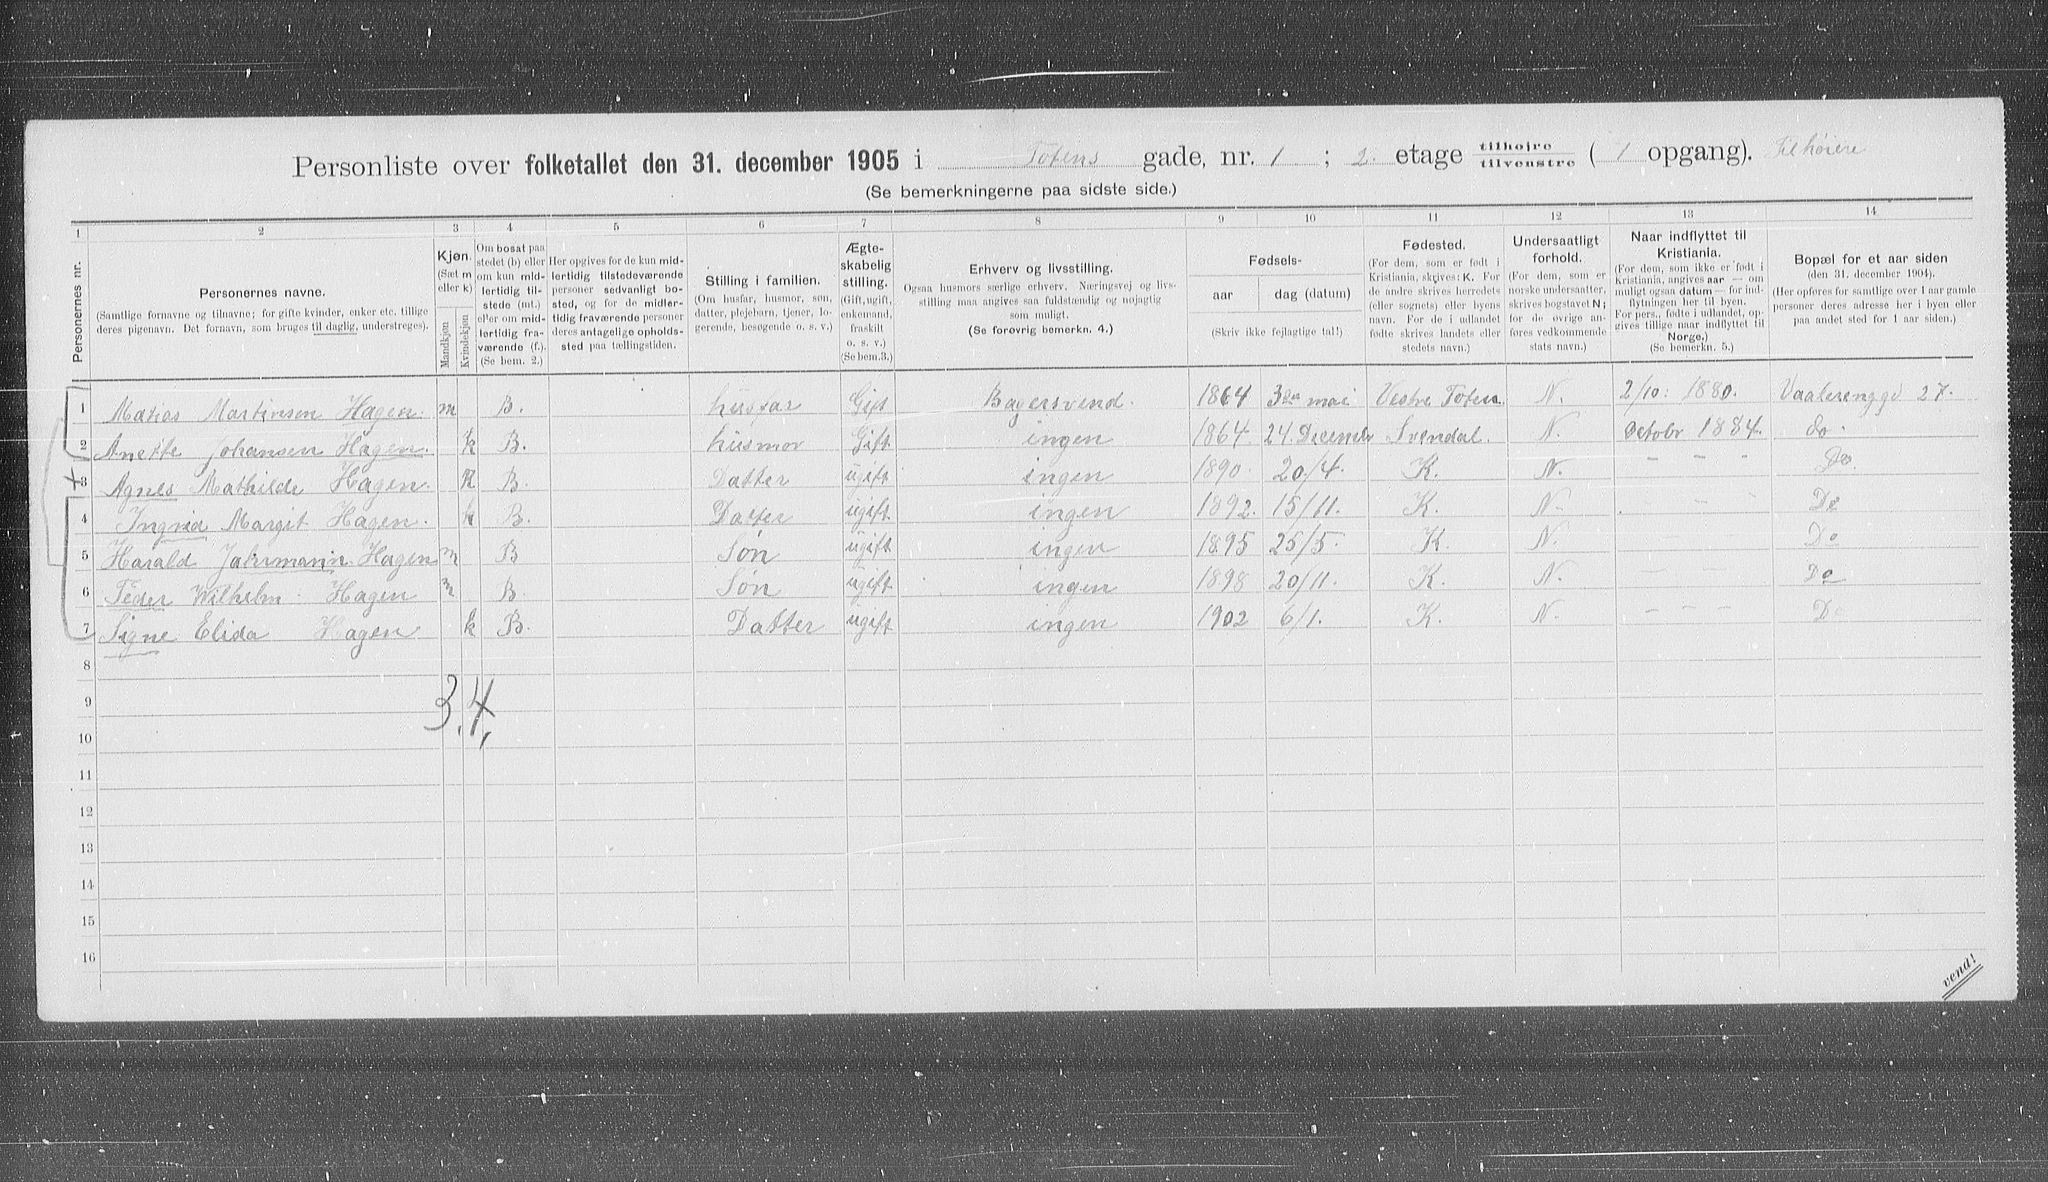 Personliste over folketallet den 31. december 1905 i Totens gade, nr. 1 ; 2. etage tilhøjre / tilvenstre ( 1 opgang). Til høire
(Se bemerkningerne paa sidste side.)
1 2 3 4 5 6 7 8 9 10 11 12 13 14
Personernes nr.
Personernes navne.
(Samtlige fornavne og tilnavne; for gifte kvinder, enker etc. tillige
deres pigenavn. Det fornavn, som bruges til daglig, understreges).
Kjøn.
(Sæt m
eller k)
Mandkjøn
Kvindekjøn
Om bosat paa
stedet (b) eller
om kun mid-
lertidig til-
stede (mt.)
eller om mid-
lertidig fra-
værende (f.).
(Se bem. 2.)
Her opgives for de kun mid-
lertidig tilstedeværende
personer sedvanligt bo-
sted, og for de midler-
tidig fraværende personer
deres antagelige opholds-
sted paa tællingstiden.
Stilling i familien.
(Om husfar, husmor, søn,
datter, plejebarn, tjener, lo-
gerende, besøgende o. s. v.)
Ægte-
skabelig
stilling.
(Gift, ugift,
enkemand,
fraskilt
o. s. v.)
(Se bem. 3.)
Erhverv og livsstilling.
Ogsaa husmors særlige erhverv. Næringsvej og livs-
stilling maa angives saa fuldstændig og nøjagtig
som muligt.
(Se forøvrig bemerkn. 4.)
Fødsels-
aar dag (datum)
(Skriv ikke fejlagtige tal!)
Fødested.
(For dem, som er født i
Kristiania, skrives: K. For
de andre skrives herredets
(eller sognets) eller byens
navn. For de i udlandet
fødte skrives landets eller
stedets navn.)
Undersaatligt
forhold.
(For dem, som er
norske undersaatter,
skrives bogstavet N;
for de øvrige an-
føres vedkommende
stats navn.)
Naar indflyttet til
Kristiania.
(For dem, som ikke er født i
Kristiania, angives aar — om
muligt ogsaa datum — for ind-
flytningen her til byen.
For pers., fødte i udlandet, op-
gives tillige naar indflyttet til
Norge.)
(Se bemerkn. 5.)
Bopæl for et aar siden
(den 31. december 1904).
(Her opføres for samtlige over 1 aar gamle
personer deres adresse her i byen eller
paa andet sted for 1 aar siden.)
1 Matias Martinsen Hagen. m B. husfar Gift Bagersvend. 1864 3die mai Vestre Toten N. 2/10: 1880. Vaalerenggd 27.
2 Anette Johansen Hagen. k B. husmor Gift ingen 1864. 24 Decembr Svendal. N. Octobr 1884. do.
3 Agnes Mathilde Hagen. k B. Datter ugift ingen 1890. 20/4. K. N. - - - Do.
4 Ingrid Margit Hagen. k B. Datter ugift ingen 1892. 15/11. K. N. - - - Do
5 Harald Jahrmann Hagen m B Søn ugift ingen 1895 25/5. K. N. - - - Do
6 Peder Wilhelm Hagen m B. Søn ugift ingen 1898 20/11. K. N. - - - Do
7 Signe Elida Hagen k B. Datter ugift ingen 1902 6/1. K. N. - - - Do
8
9 3. 4.
10
11
12
13
14
15
16
vend!